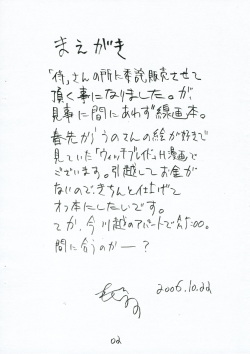 まえがき
「侍」さんの所に委託販売させて
頂く事になりました。が
見事に間にあわず線画本。
春先からうのさんの絵が好きで
見ていた「ウィッチブレイド」H漫画で
ございます。引越してお金が
ないのできちんと仕上げて
オフ本にしたいです。
てか、今川越のアパートでAM5:00。
間に合うのかー？
2006.10.22
02